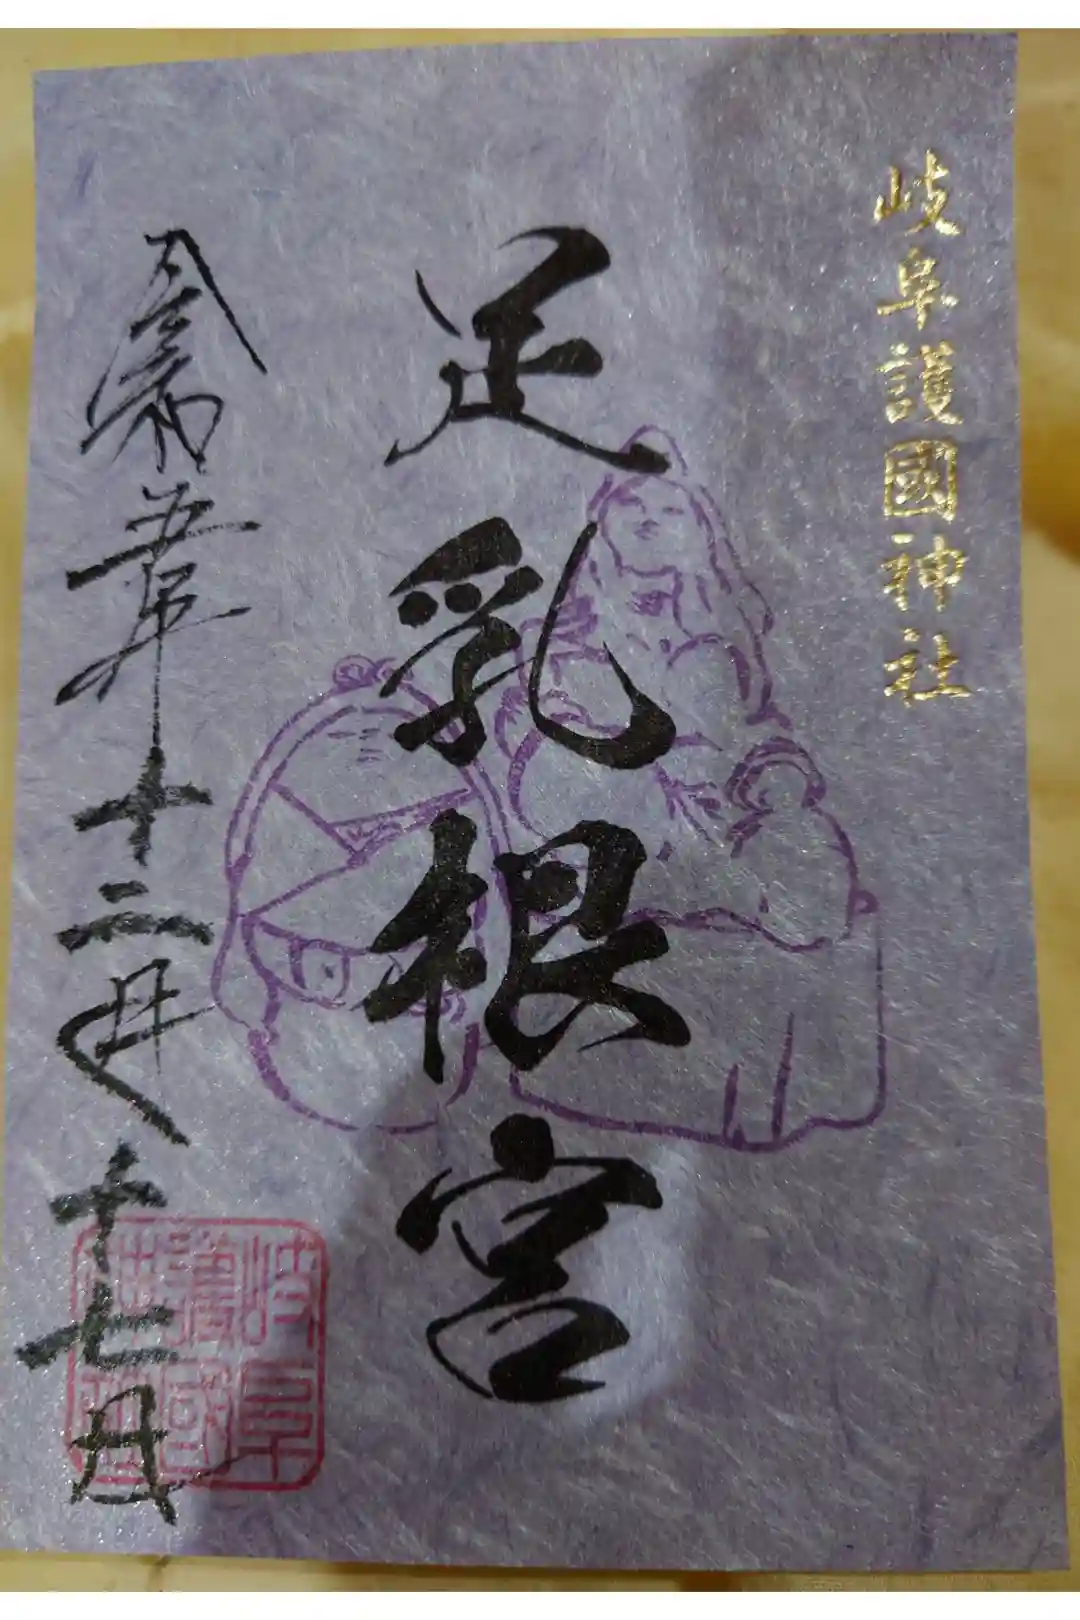 岐阜護國神社
足乳根宮
令和五年十二月十七日
岐阜
護國
神社